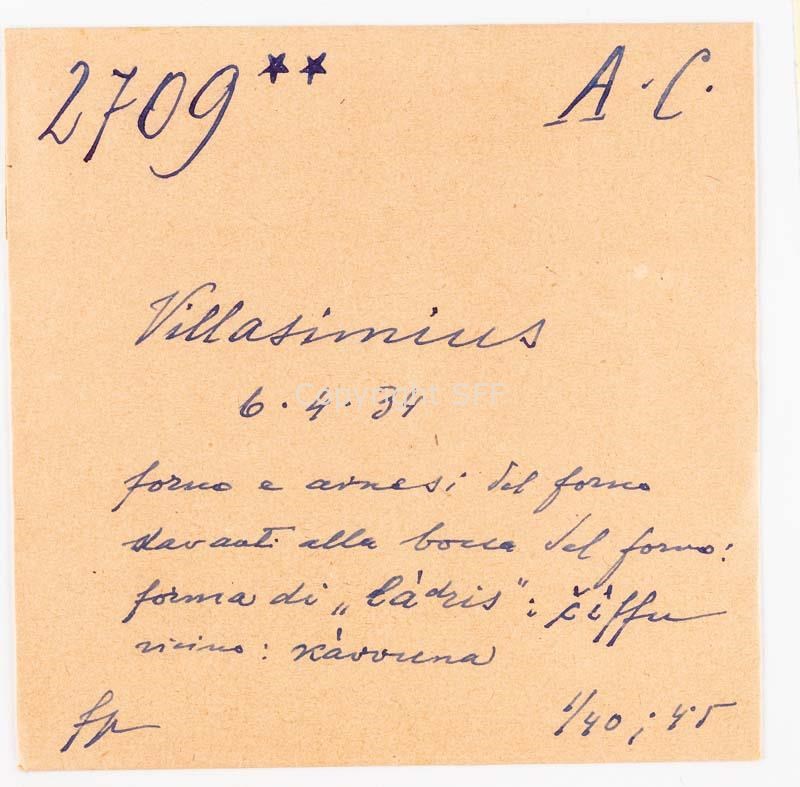 2709** A.C.
Villasimius
6.4.34
forno e arnesi del forno
davanti alla bocca del forno:
forma di „ládris":
vicino:
1/40; 4.5
Copyright SFF